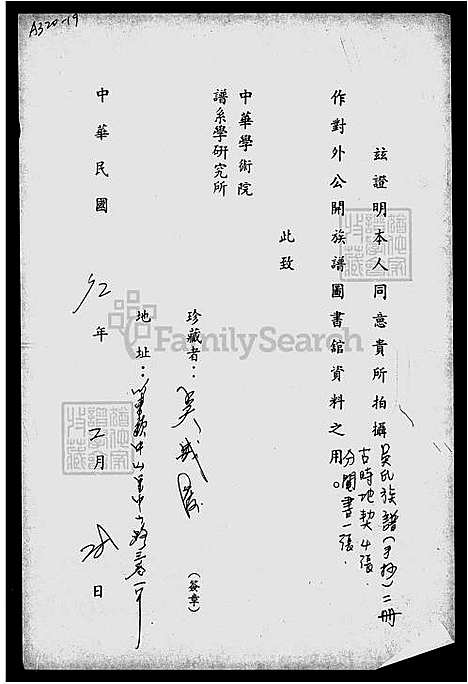 A320-19
玆證明本人同意貴所拍攝吳氏族譜(手抄)二冊
古時地契4張.
分鬮書一張.
作對外公開族譜圖書館資料之用。
此致
中華學術院
譜系學研究所
珍藏者：吳
(簽章)
地址：中山里中
中華民國 年 月 日
FamilySearch